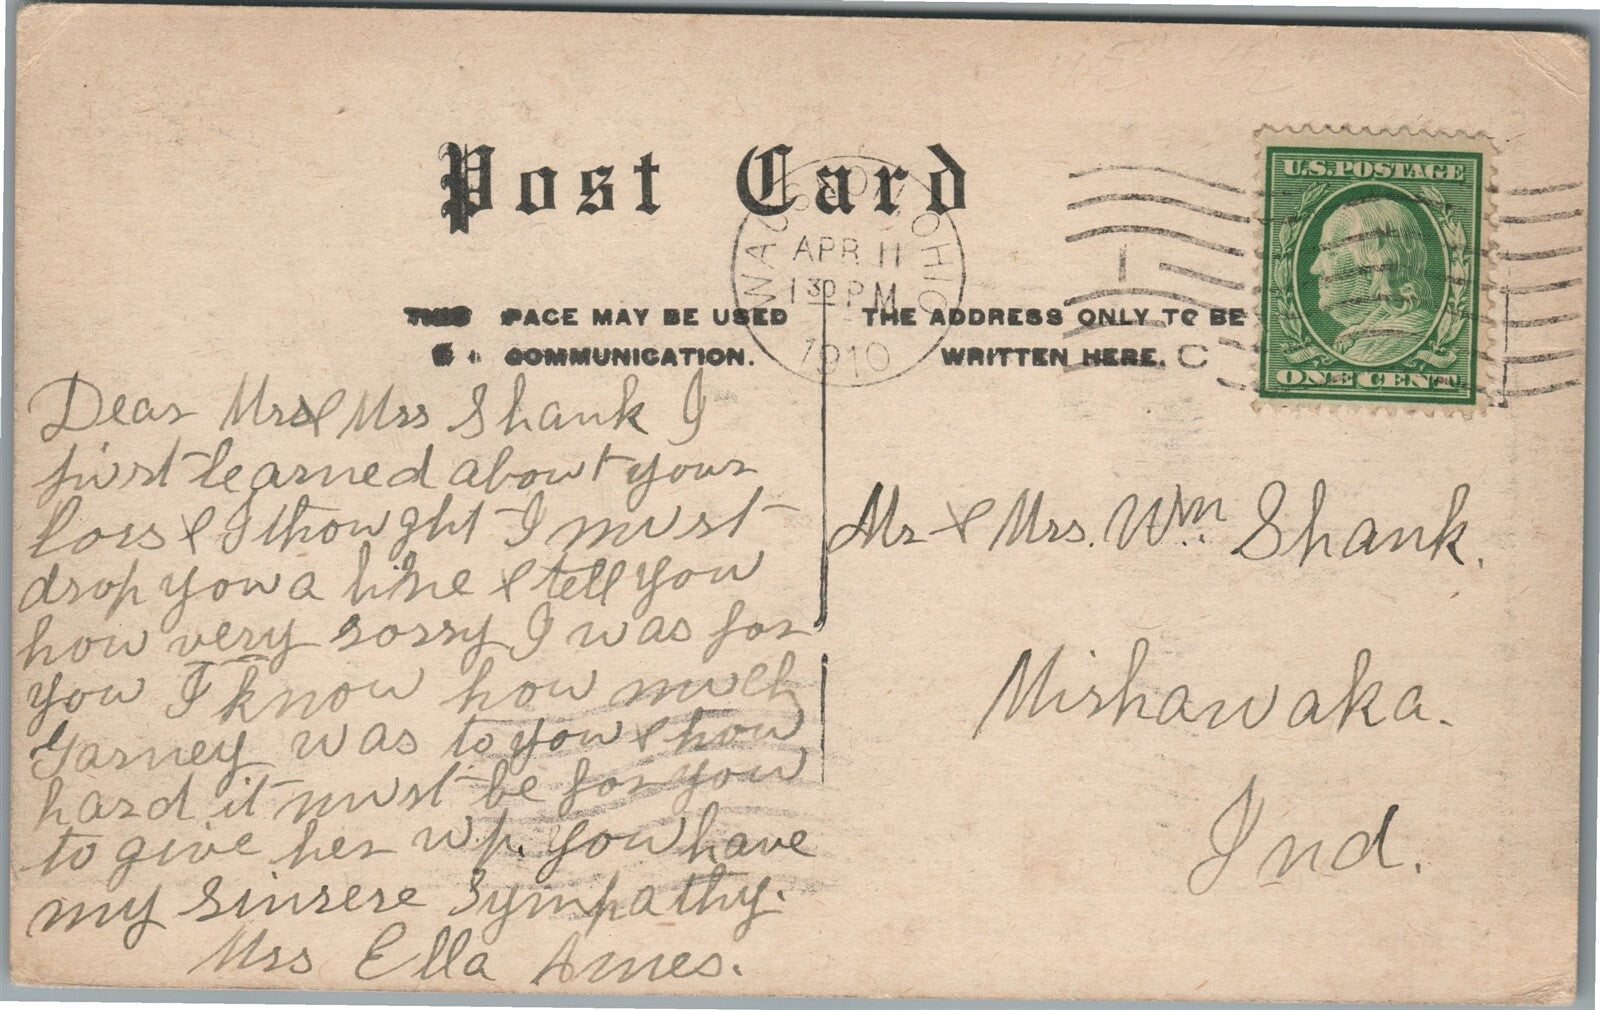 Post Card
U.S. POSTAGE
ONE CENT
WAUSEON OHIO
APR 11
1 30 PM
1910
C
THIS SPACE MAY BE USED
COMMUNICATION.
THE ADDRESS ONLY TO BE
WRITTEN HERE.
Dear Mrs & Mrs Shank I
first learned about your
loss & I thought I must
drop you a line & tell you
how very sorry I was for
you I know how much
was to you & how
hard it must be for you
to give her up. You have
my sinsere Sympathy.
Mrs Ella Ames.
Mr & Mrs. Wm. Shank.
Mishawaka.
Ind.